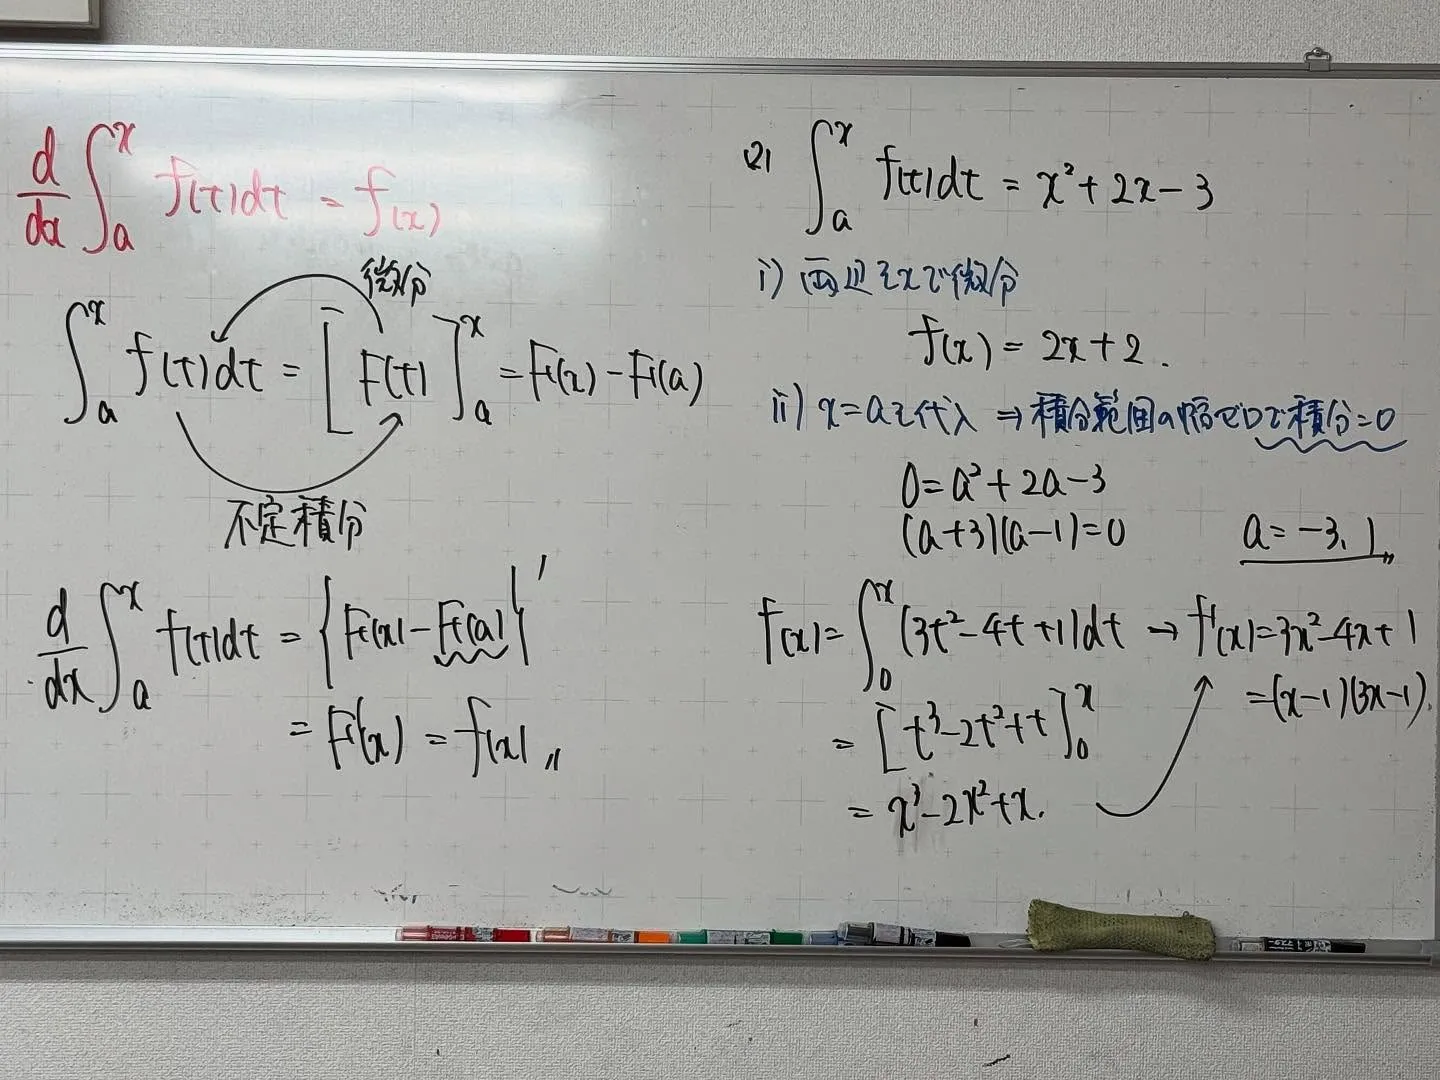 d/dx ∫_a^x f(t)dt = f(x)
微分
∫_a^x f(t)dt = [F(t)]_a^x = F(x) - F(a)
不定積分
d/dx ∫_a^x f(t)dt = {F(x) - F(a)}'
= F'(x) = f(x)〃
(2) ∫_a^x f(t)dt = x² + 2x - 3
i) 両辺をxで微分
f(x) = 2x + 2.
ii) x = aを代入 ⇒ 積分範囲の幅が0で積分=0
0 = a² + 2a - 3
(a+3)(a-1) = 0 a = -3, 1〃
f(x) = ∫_0^x (3t² - 4t + 1)dt → f'(x) = 3x² - 4x + 1
= (x-1)(3x-1).
= [t³ - 2t² + t]_0^x
= x³ - 2x² + x.